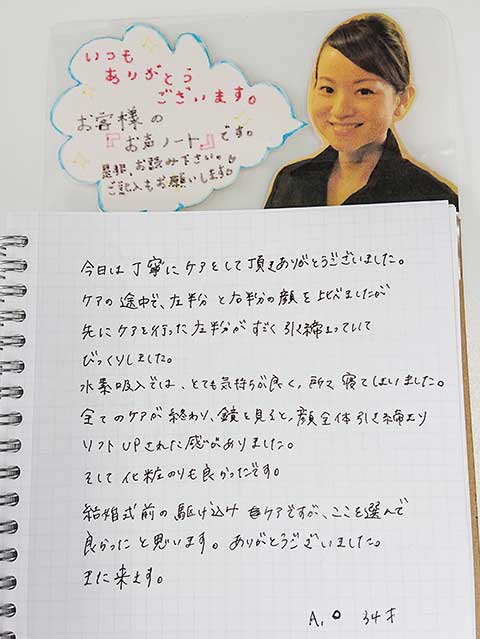 いつも
ありがとう
ございます。
お客様の
『お声ノート』です。
是非、お読み下さい。
ご記入もお願いします。
今日は丁寧にケアをして頂きありがとうございました。
ケアの途中で、左半分と右半分の顔を比べましたが
先にケアを行った左半分がすごく引き締まっていて
びっくりしました。
水素吸入では、とても気持ちが良く、所々寝てしまいました。
全てのケアが終わり、鏡を見ると、顔全体引き締まり
リフトUPされた感がありました。
そして化粧のりも良かったです。
結婚式前の駆け込みケアですが、ここを選んで
良かったと思います。ありがとうございました。
また来ます。
A.O 34才